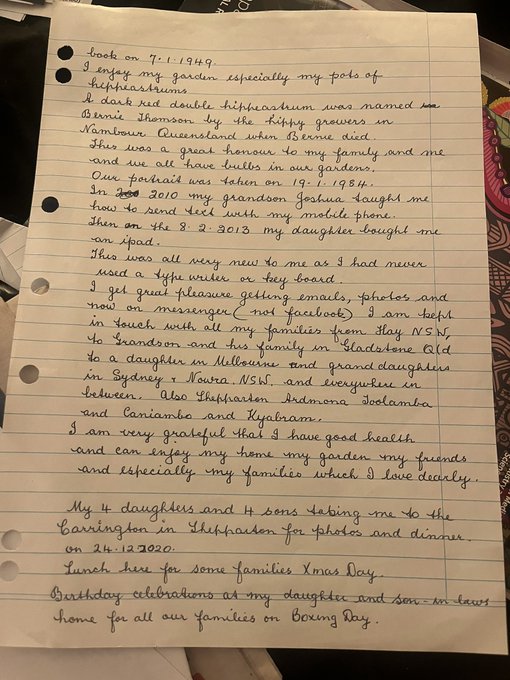 book on 7.1.1949.
I enjoy my garden especially my pots of
hippeastrums
A dark red double hippeastrum was named
Bernie Thomson by the hippy growers in
Nambour Queensland when Bernie died.
This was a great honour to my family and me
and we all have bulbs in our gardens.
Our portrait was taken on 19.1.1984.
In 2010 my grandson Joshua taught me
how to send text with my mobile phone.
Then on the 8.2.2013 my daughter bought me
an ipad.
This was all very new to me as I had never
used a type writer or key board.
I get great pleasure getting emails, photos and
now on messenger (not facebook) I am kept
in touch with all my families from Hay NSW,
to Grandson and his family in Gladstone Qld
to a daughter in Melbourne and grand daughters
in Sydney & Nowra. NSW. and everywhere in
between. Also Shepparton Ardmona Toolamba
and Caniambo and Kyabram.
I am very grateful that I have good health
and can enjoy my home my garden my friends
and especially my families which I love dearly.
My 4 daughters and 4 sons taking me to the
Carrington in Shepparton for photos and dinner.
on 24.12.2020.
Lunch here for some families Xmas Day.
Birthday celebrations at my daughter and son-in-laws
home for all our families on Boxing Day.